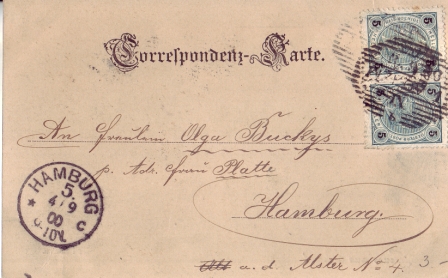 Correspondenz-Karte.
5 5
5 5
An Fräulein Olga Buckys
p. Ads. Frau Platte
Hamburg.
a. d. Alster No 43
HAMBURG
5.
4/9
00
C